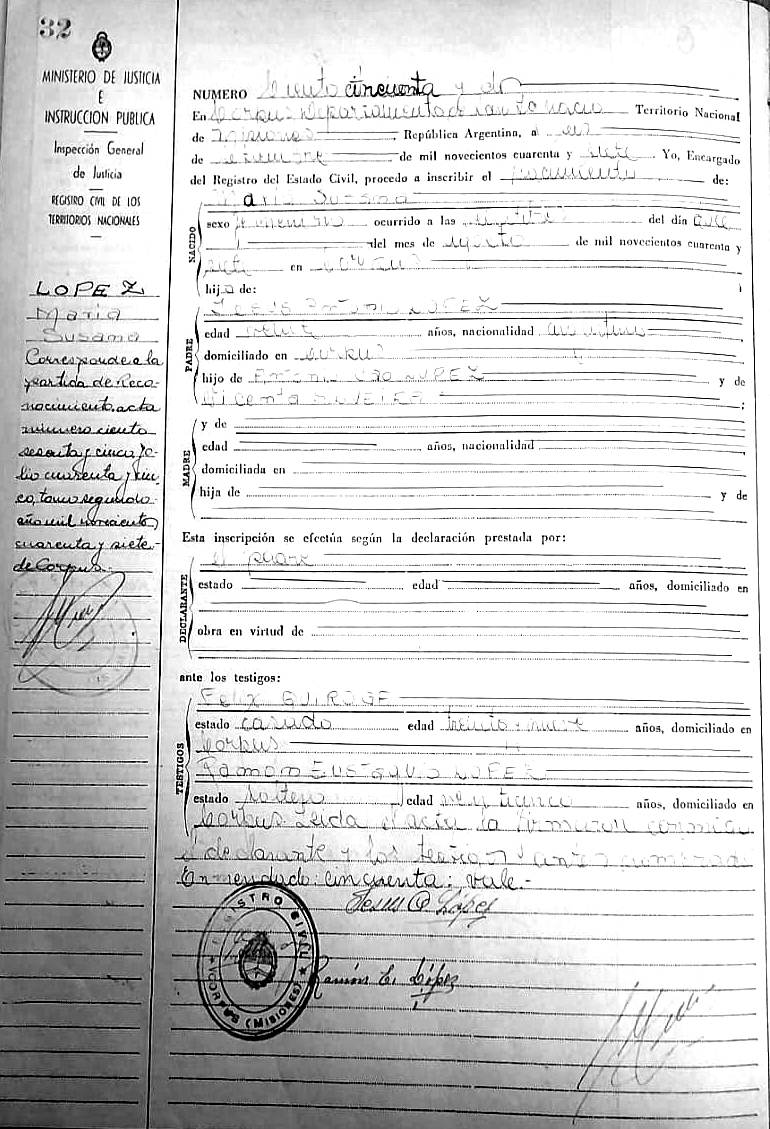 32
MINISTERIO DE JUSTICIA
E
INSTRUCCION PUBLICA
Inspección General
de Justicia
REGISTRO CIVIL DE LOS
TERRITORIOS NACIONALES
LOPEZ
Maria
Susana
Corresponde a la
partida de Reco-
nocimiento, acta
número ciento
sesenta y cinco, fo-
lio cuarenta y cin-
co, tomo segundo
año mil novecientos
cuarenta y siete-
de Corpus.-
NUMERO Ciento cincuenta y dos
En Corpus Departamento de San Ignacio Territorio Nacional
de Misiones, República Argentina, a
de de mil novecientos cuarenta y siete. Yo, Encargado
del Registro del Estado Civil, procedo a inscribir el nacimiento de:
Maria Susana
NACIDO
sexo femenino ocurrido a las del día
del mes de agosto de mil novecientos cuarenta y
siete en Corpus
hija de:
PADRE
Jesus Antonio LOPEZ
edad años, nacionalidad argentino
domiciliado en Corpus
hijo de Antonio LOPEZ y de
Vicenta
MADRE
y de
edad años, nacionalidad
domiciliada en
hija de y de
Esta inscripción se efectúa según la declaración prestada por:
DECLARANTE
el padre
estado edad años, domiciliado en
obra en virtud de
ante los testigos:
TESTIGOS
Felix
estado casado edad treinta y nueve años, domiciliado en
Corpus
Ramón EUSTAQUIO LOPEZ
estado soltero edad años, domiciliado en
Corpus. Leida el acta la firmaron conmigo
el declarante y los testigos antes nombrados
Enmendado: cincuenta: vale.-
Jesus A López
REGISTRO CIVIL
(MISIONES)
Ramón E. López